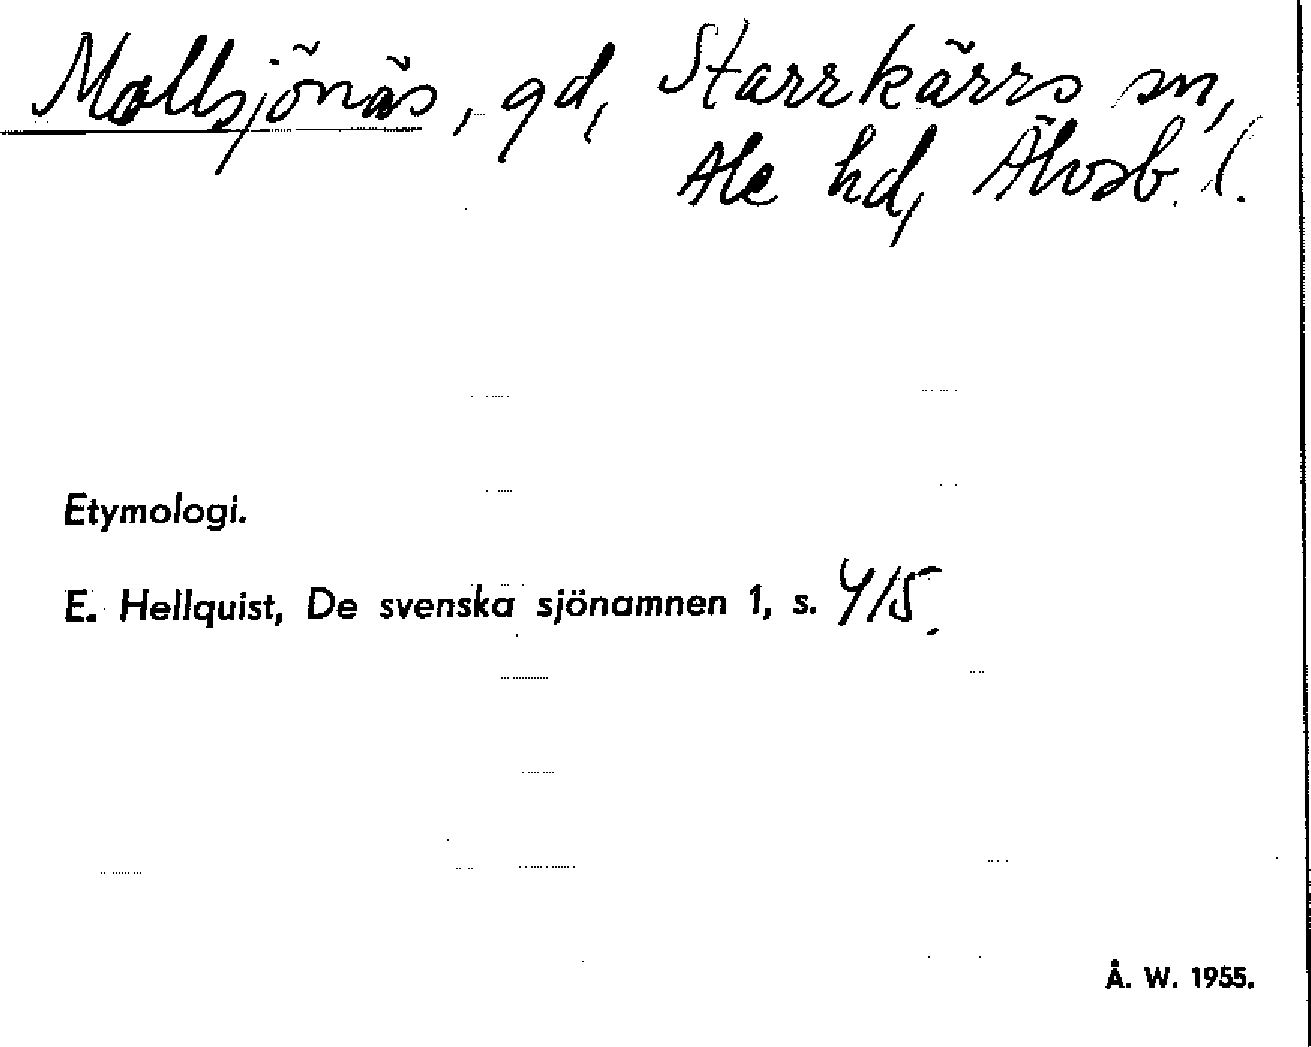 Mollsjönäs, gd, Starrkärrs sn,
Ale hd, Älvsb. l.
Etymologi.
E. Hellquist, De svenska sjönamnen 1, s. 415.
Å. W. 1955.